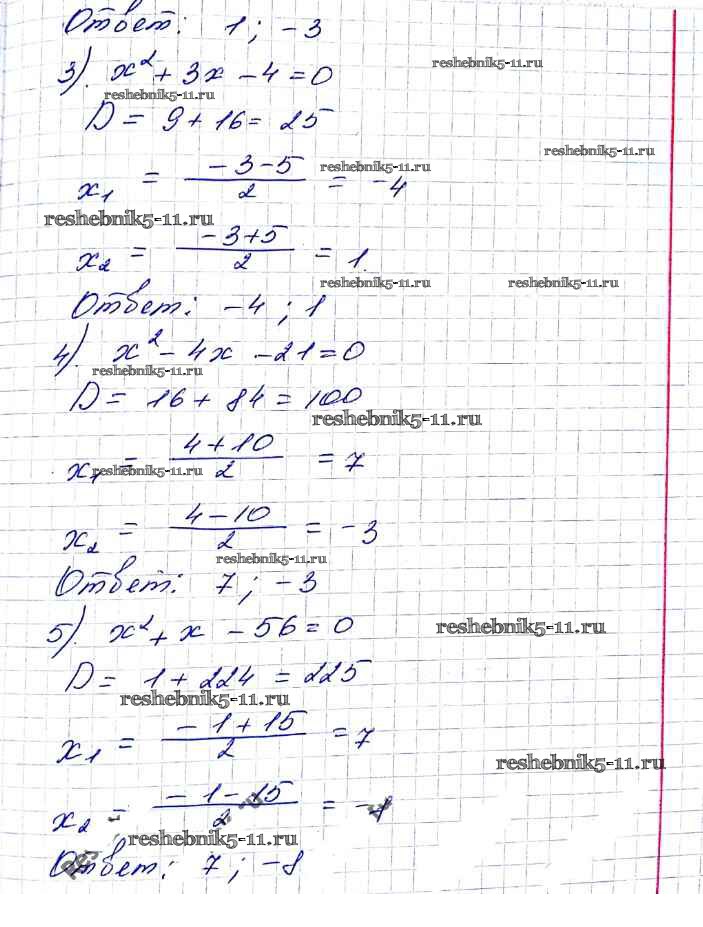 Ответ: 1; -3
3). x² + 3x - 4 = 0
reshebnik5-11.ru
reshebnik5-11.ru
D = 9 + 16 = 25
reshebnik5-11.ru
x₁ = (-3-5)/2 = -4
reshebnik5-11.ru
reshebnik5-11.ru
x₂ = (-3+5)/2 = 1.
reshebnik5-11.ru
reshebnik5-11.ru
Ответ: -4; 1
4). x² - 4x - 21 = 0
reshebnik5-11.ru
D = 16 + 84 = 100
reshebnik5-11.ru
x₁ = (4+10)/2 = 7
reshebnik5-11.ru
x₂ = (4-10)/2 = -3
reshebnik5-11.ru
Ответ: 7; -3
5). x² + x - 56 = 0
reshebnik5-11.ru
D = 1 + 224 = 225
reshebnik5-11.ru
x₁ = (-1+15)/2 = 7
reshebnik5-11.ru
x₂ = (-1-15)/2 = -8
reshebnik5-11.ru
Ответ: 7; -8